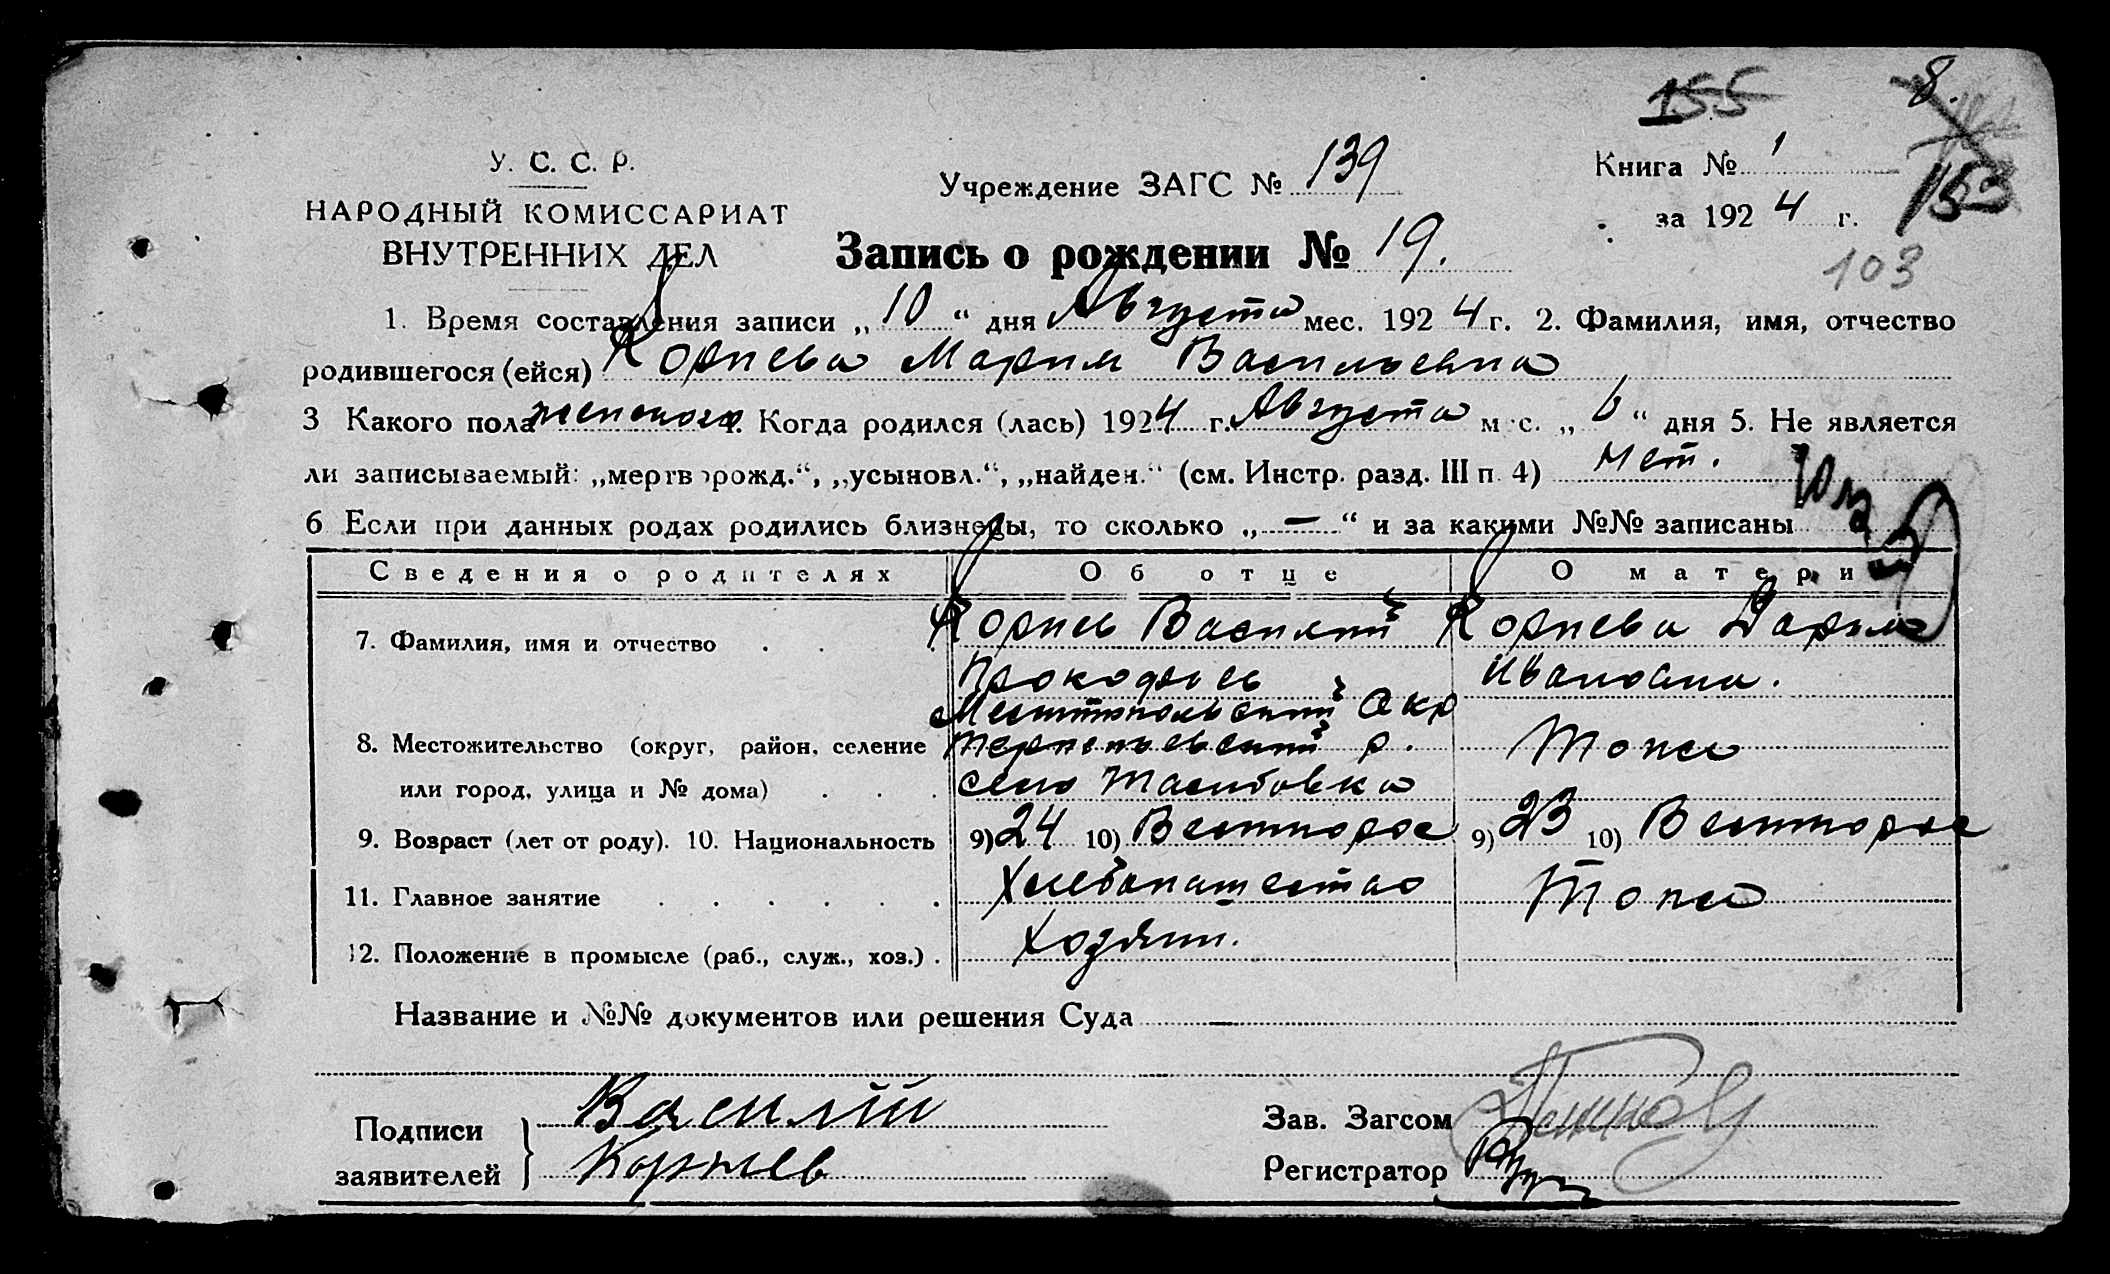 155
8.
У. С. С. Р.
НАРОДНЫЙ КОМИССАРИАТ
ВНУТРЕННИХ ДЕЛ
Учреждение ЗАГС № 139
Книга № 1
за 1924 г.
153
103
Запись о рождении № 19.
1. Время составления записи „10“ дня Августа мес. 1924 г. 2. Фамилия, имя, отчество
родившегося (ейся) Корнева Мария Васильевна
3 Какого пола женского 4. Когда родился (лась) 1924 г. Августа мес. „6“ дня 5. Не является
ли записываемый: „мертворожд.“, „усыновл.“, „найден.“ (см. Инстр. разд. III п. 4) нет.
6 Если при данных родах родились близнецы, то сколько „—“ и за какими №№ записаны
Сведения о родителях Об отце О матери
7. Фамилия, имя и отчество Корнев Василий Корнева Дария
Прокофьев Ивановна.
Мелитопольский Окр
8. Местожительство (округ, район, селение Терпеньевский р. Тоже
или город, улица и № дома) село
9. Возраст (лет от роду). 10. Национальность 9) 24 10) 9) 23 10)
11. Главное занятие Хлебопашество Тоже
12. Положение в промысле (раб., служ., хоз.) Хозяин.
Название и №№ документов или решения Суда —
Подписи Василий Зав. Загсом
заявителей Корнев Регистратор